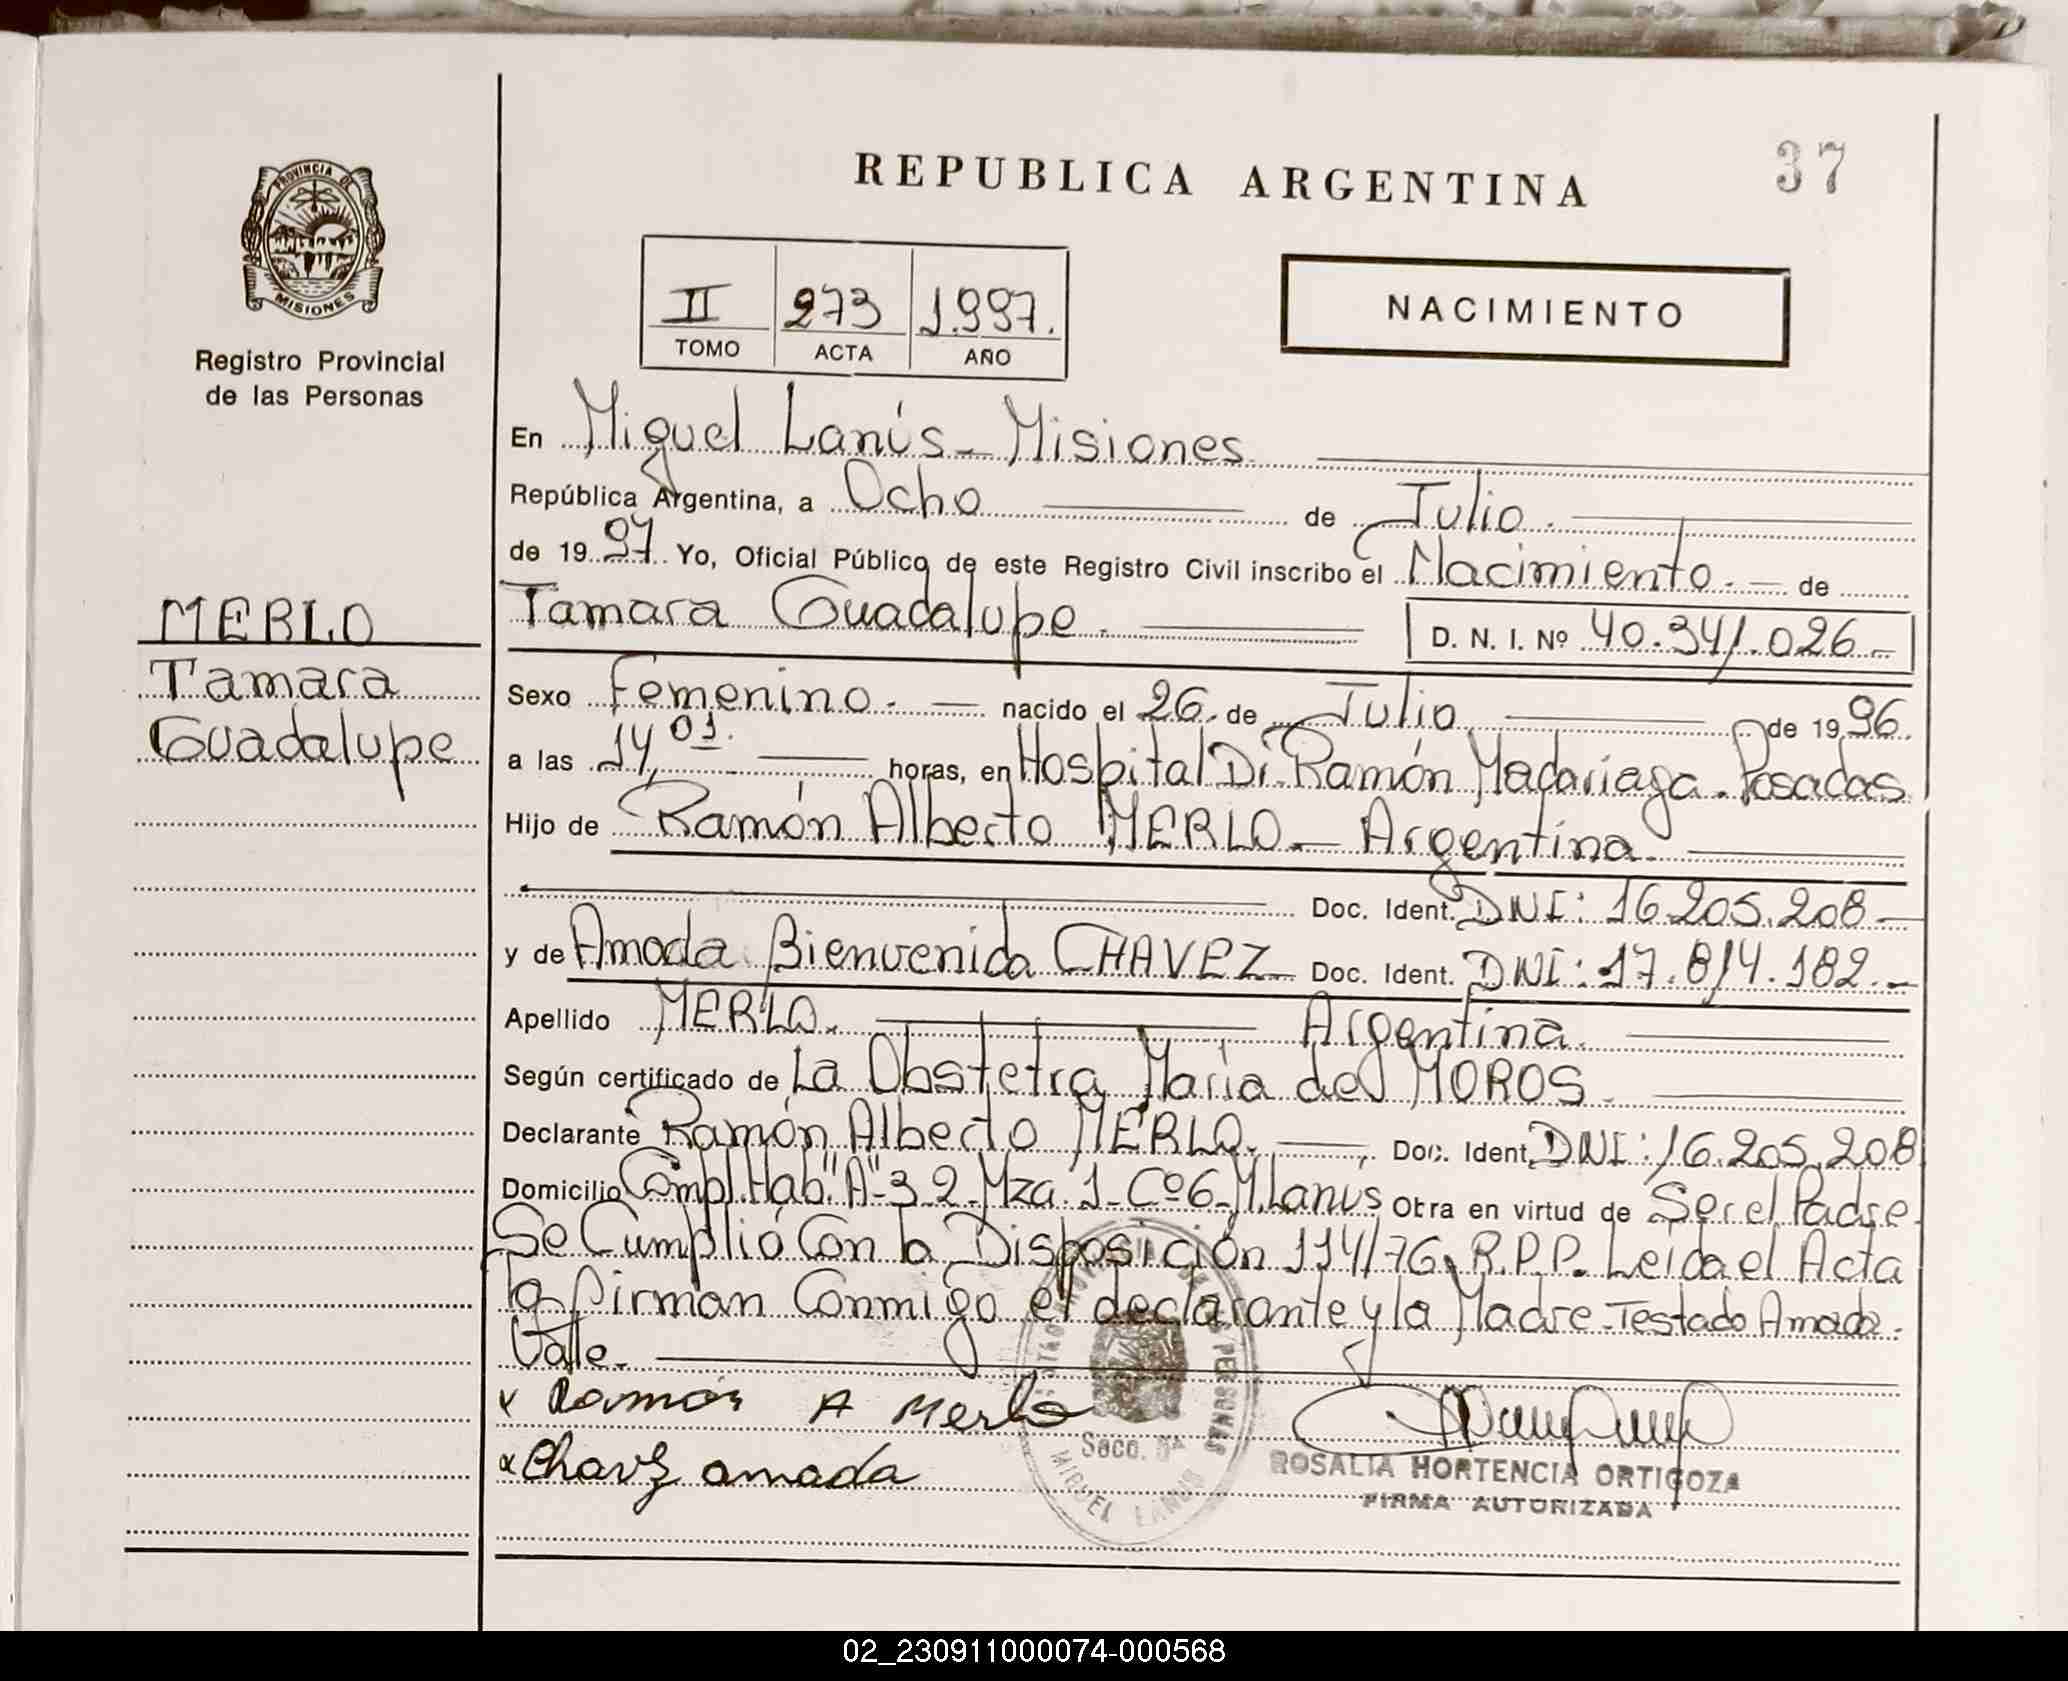 PROVINCIA DE
MISIONES
Registro Provincial
de las Personas
MERLO
Tamara
Guadalupe
REPUBLICA ARGENTINA
37
II 273 1.997.
TOMO ACTA AÑO
NACIMIENTO
En Miguel Lanús - Misiones
República Argentina, a Ocho de Julio.
de 1997 Yo, Oficial Público de este Registro Civil inscribo el Nacimiento. de
Tamara Guadalupe. D. N. I. Nº 40.341.026-
Sexo Femenino. nacido el 26. de Julio de 1996.
a las 14,01. horas, en Hospital Dr. Ramón Madariaga. Posadas
Hijo de Ramón Alberto MERLO - Argentina.
Doc. Ident. DNI: 16.205.208-
y de Amada Bienvenida CHAVEZ Doc. Ident. DNI: 17.814.182.-
Apellido MERLO. Argentina.
Según certificado de La Obstetra María del MOROS.
Declarante Ramón Alberto MERLO. Doc. Ident. DNI: 16.205.208
Domicilio Compl. Hab "A"-32-Mza. 1-Cº6-M.Lanus Otra en virtud de Ser el Padre.
Se Cumplió Con la Disposición 114/76. R.P.P. Leida el Acta
la firman Conmigo el declarante y la Madre-Testado Amada.
Vale.
x Ramón A Merlo
x Chavez amada
Secc. 5ª
MIGUEL LANUS
ROSALIA HORTENCIA ORTIGOZA
FIRMA AUTORIZADA
02_230911000074-000568